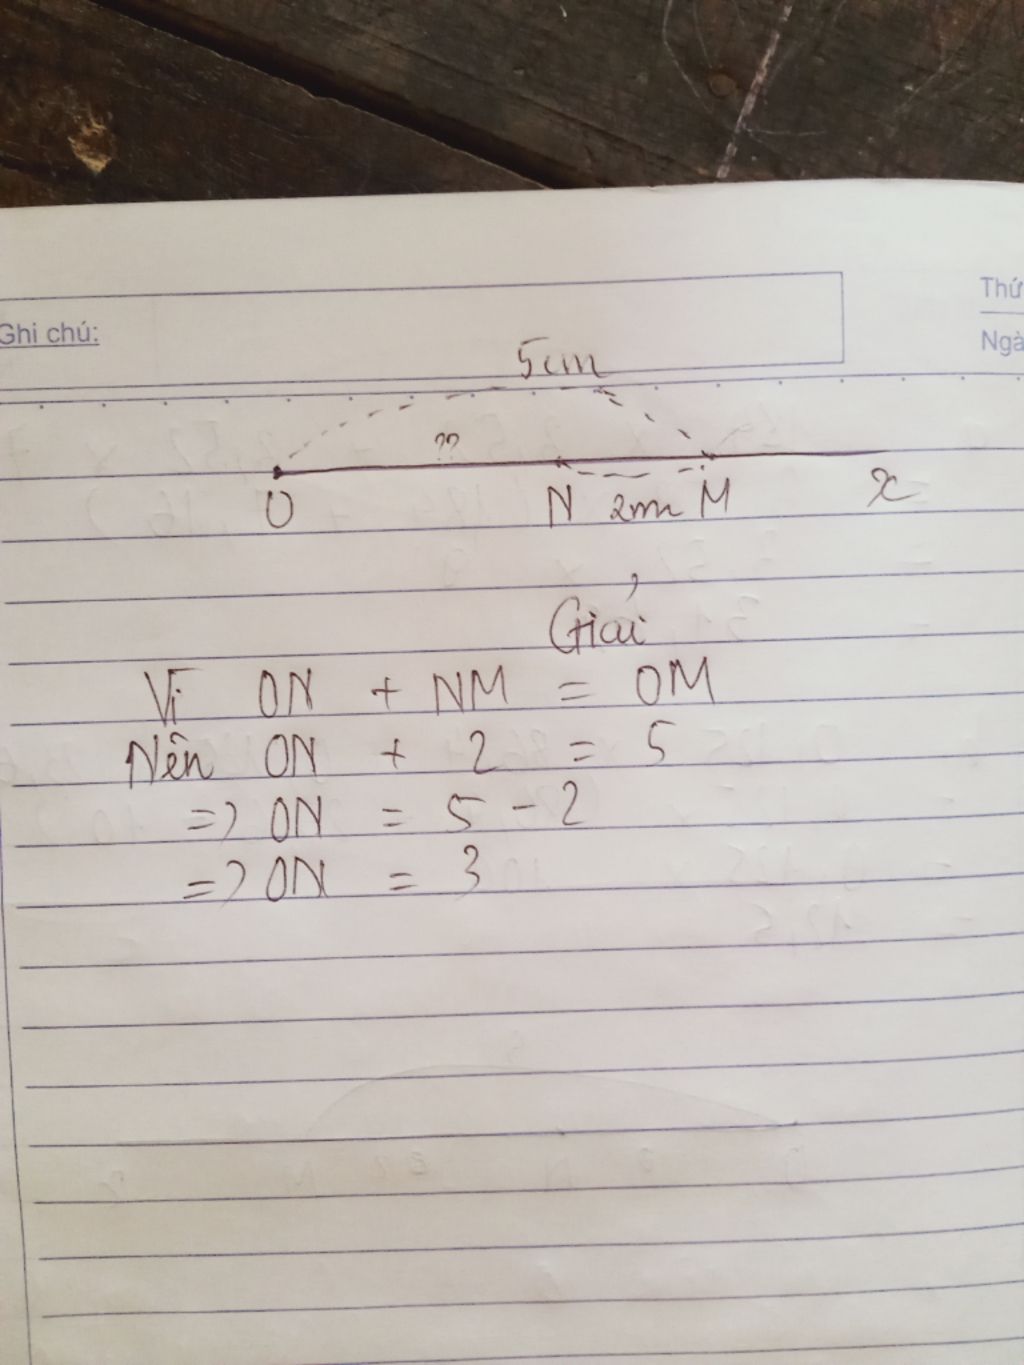 Thứ
Ghi chú:
Ngà
5cm
??
O N 2m M x
Giải
Vì ON + NM = OM
Nên ON + 2 = 5
=> ON = 5 - 2
=> ON = 3